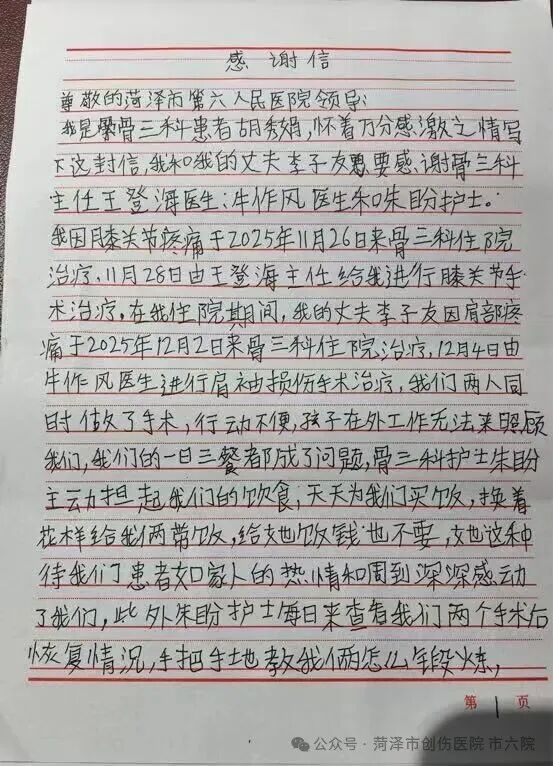 感谢信
尊敬的菏泽市第六人民医院领导:
我是骨三科患者胡秀娟,怀着万分感激之情写
下这封信,我和我的丈夫李子友要感谢骨三科
主任王登海医生;牛作风医生和朱盼护士。
我因膝关节疼痛于2025年11月26日来骨三科住院
治疗,11月28日由王登海主任给我进行膝关节手
术治疗,在我住院期间,我的丈夫李子友因肩部疼
痛于2025年12月2日来骨三科住院治疗,12月4日由
牛作风医生进行肩袖损伤手术治疗,我们两人同
时做了手术,行动不便,孩子在外工作无法来照顾
我们,我们的一日三餐都成了问题,骨三科护士朱盼
主动担起我们的饮食,天天为我们买饭,换着
花样给我俩带饭,给她饭钱也不要,她这种
待我们患者如家人的热情和周到深深感动
了我们,此外朱盼护士每日来查看我们两个手术后
恢复情况,手把手地教我俩怎么锻炼,
第 1 页
公众号·菏泽市创伤医院 市六院